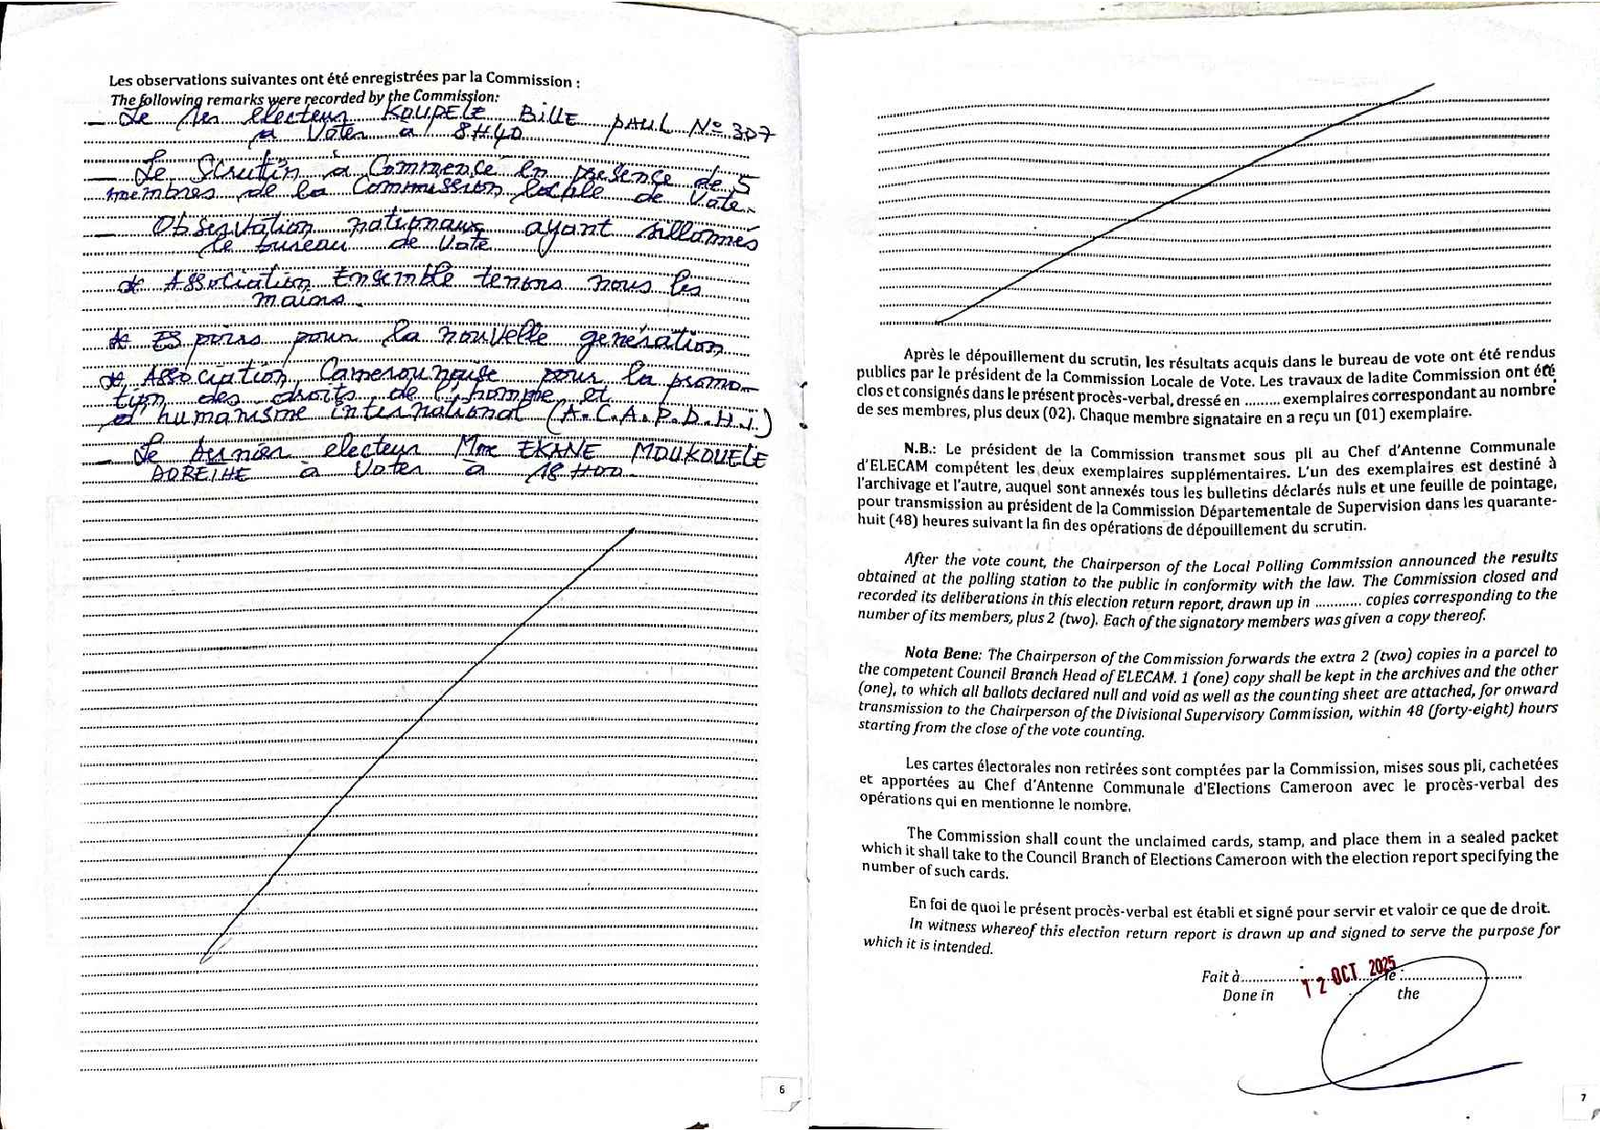 Les observations suivantes ont été enregistrées par la Commission :
The following remarks were recorded by the Commission:
— Le 1er électeur KOUPELE BILLE PAUL N° 307
a Voter à 8H40
— Le Scrutin à Commencé en présence de 5
membres de la Commission locale de Vote.
— Observation nationaux ayant sillonnés
le bureau de Vote
* Association Ensemble tenons nous les
mains.
* Espoirs pour la nouvelle génération
* Association Camerounaise pour la promo-
tion des droits de l'homme et
d'humanisme international (A.C.A.P.D.H.I)
— Le dernier electeur Mme EKANE MOUKOUELE
ADREIHE à Voter à 18H00
6
Après le dépouillement du scrutin, les résultats acquis dans le bureau de vote ont été rendus
publics par le président de la Commission Locale de Vote. Les travaux de ladite Commission ont été
clos et consignés dans le présent procès-verbal, dressé en ......... exemplaires correspondant au nombre
de ses membres, plus deux (02). Chaque membre signataire en a reçu un (01) exemplaire.
N.B.: Le président de la Commission transmet sous pli au Chef d'Antenne Communale
d'ELECAM compétent les deux exemplaires supplémentaires. L'un des exemplaires est destiné à
l'archivage et l'autre, auquel sont annexés tous les bulletins déclarés nuls et une feuille de pointage,
pour transmission au président de la Commission Départementale de Supervision dans les quarante-
huit (48) heures suivant la fin des opérations de dépouillement du scrutin.
After the vote count, the Chairperson of the Local Polling Commission announced the results
obtained at the polling station to the public in conformity with the law. The Commission closed and
recorded its deliberations in this election return report, drawn up in ........... copies corresponding to the
number of its members, plus 2 (two). Each of the signatory members was given a copy thereof.
Nota Bene: The Chairperson of the Commission forwards the extra 2 (two) copies in a parcel to
the competent Council Branch Head of ELECAM. 1 (one) copy shall be kept in the archives and the other
(one), to which all ballots declared null and void as well as the counting sheet are attached, for onward
transmission to the Chairperson of the Divisional Supervisory Commission, within 48 (forty-eight) hours
starting from the close of the vote counting.
Les cartes électorales non retirées sont comptées par la Commission, mises sous pli, cachetées
et apportées au Chef d'Antenne Communale d'Elections Cameroon avec le procès-verbal des
opérations qui en mentionne le nombre.
The Commission shall count the unclaimed cards, stamp, and place them in a sealed packet
which it shall take to the Council Branch of Elections Cameroon with the election report specifying the
number of such cards.
En foi de quoi le présent procès-verbal est établi et signé pour servir et valoir ce que de droit.
In witness whereof this election return report is drawn up and signed to serve the purpose for
which it is intended.
Fait à 12 OCT 2025 le
Done in the
7